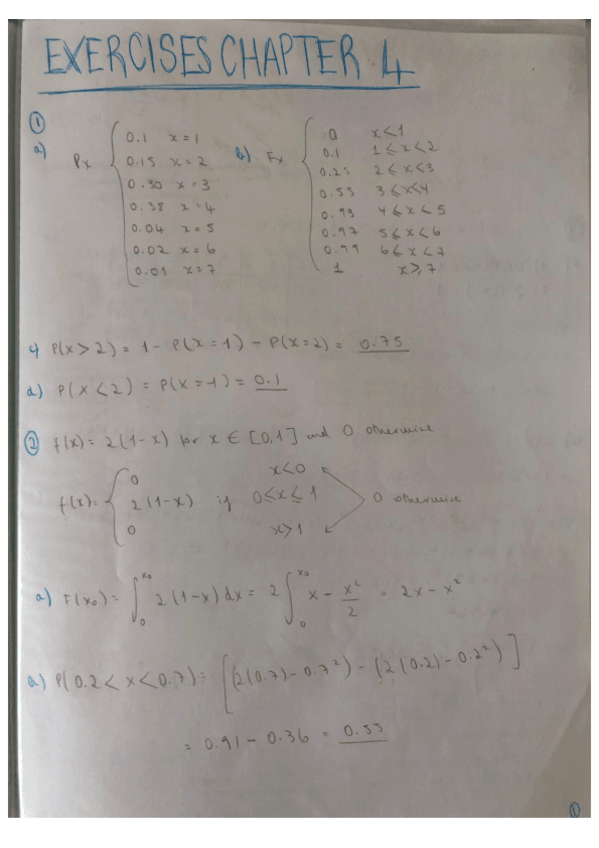 EXERCISES CHAPTER 4
①
a) Px { 0.1 x=1
0.15 x=2
0.30 x=3
0.38 x=4
0.04 x=5
0.02 x=6
0.01 x=7
b) Fx { 0 x<1
0.1 1≤x<2
0.25 2≤x<3
0.55 3≤x<4
0.93 4≤x<5
0.97 5≤x<6
0.99 6≤x<7
1 x≥7
c) P(x>2) = 1 - P(x=1) - P(x=2) = 0.75
d) P(x<2) = P(x=1) = 0.1
② f(x) = 2(1-x) for x ∈ [0,1] and 0 otherwise
f(x) = { 0 x<0
2(1-x) if 0≤x≤1 0 otherwise
0 x>1
a) F(x₀) = ∫₀^x₀ 2(1-x)dx = 2∫₀^x₀ x - x²/2 = 2x - x²
a) P(0.2<x<0.7) = [(2(0.7) - 0.7²) - (2(0.2) - 0.2²)]
= 0.91 - 0.36 = 0.55
①